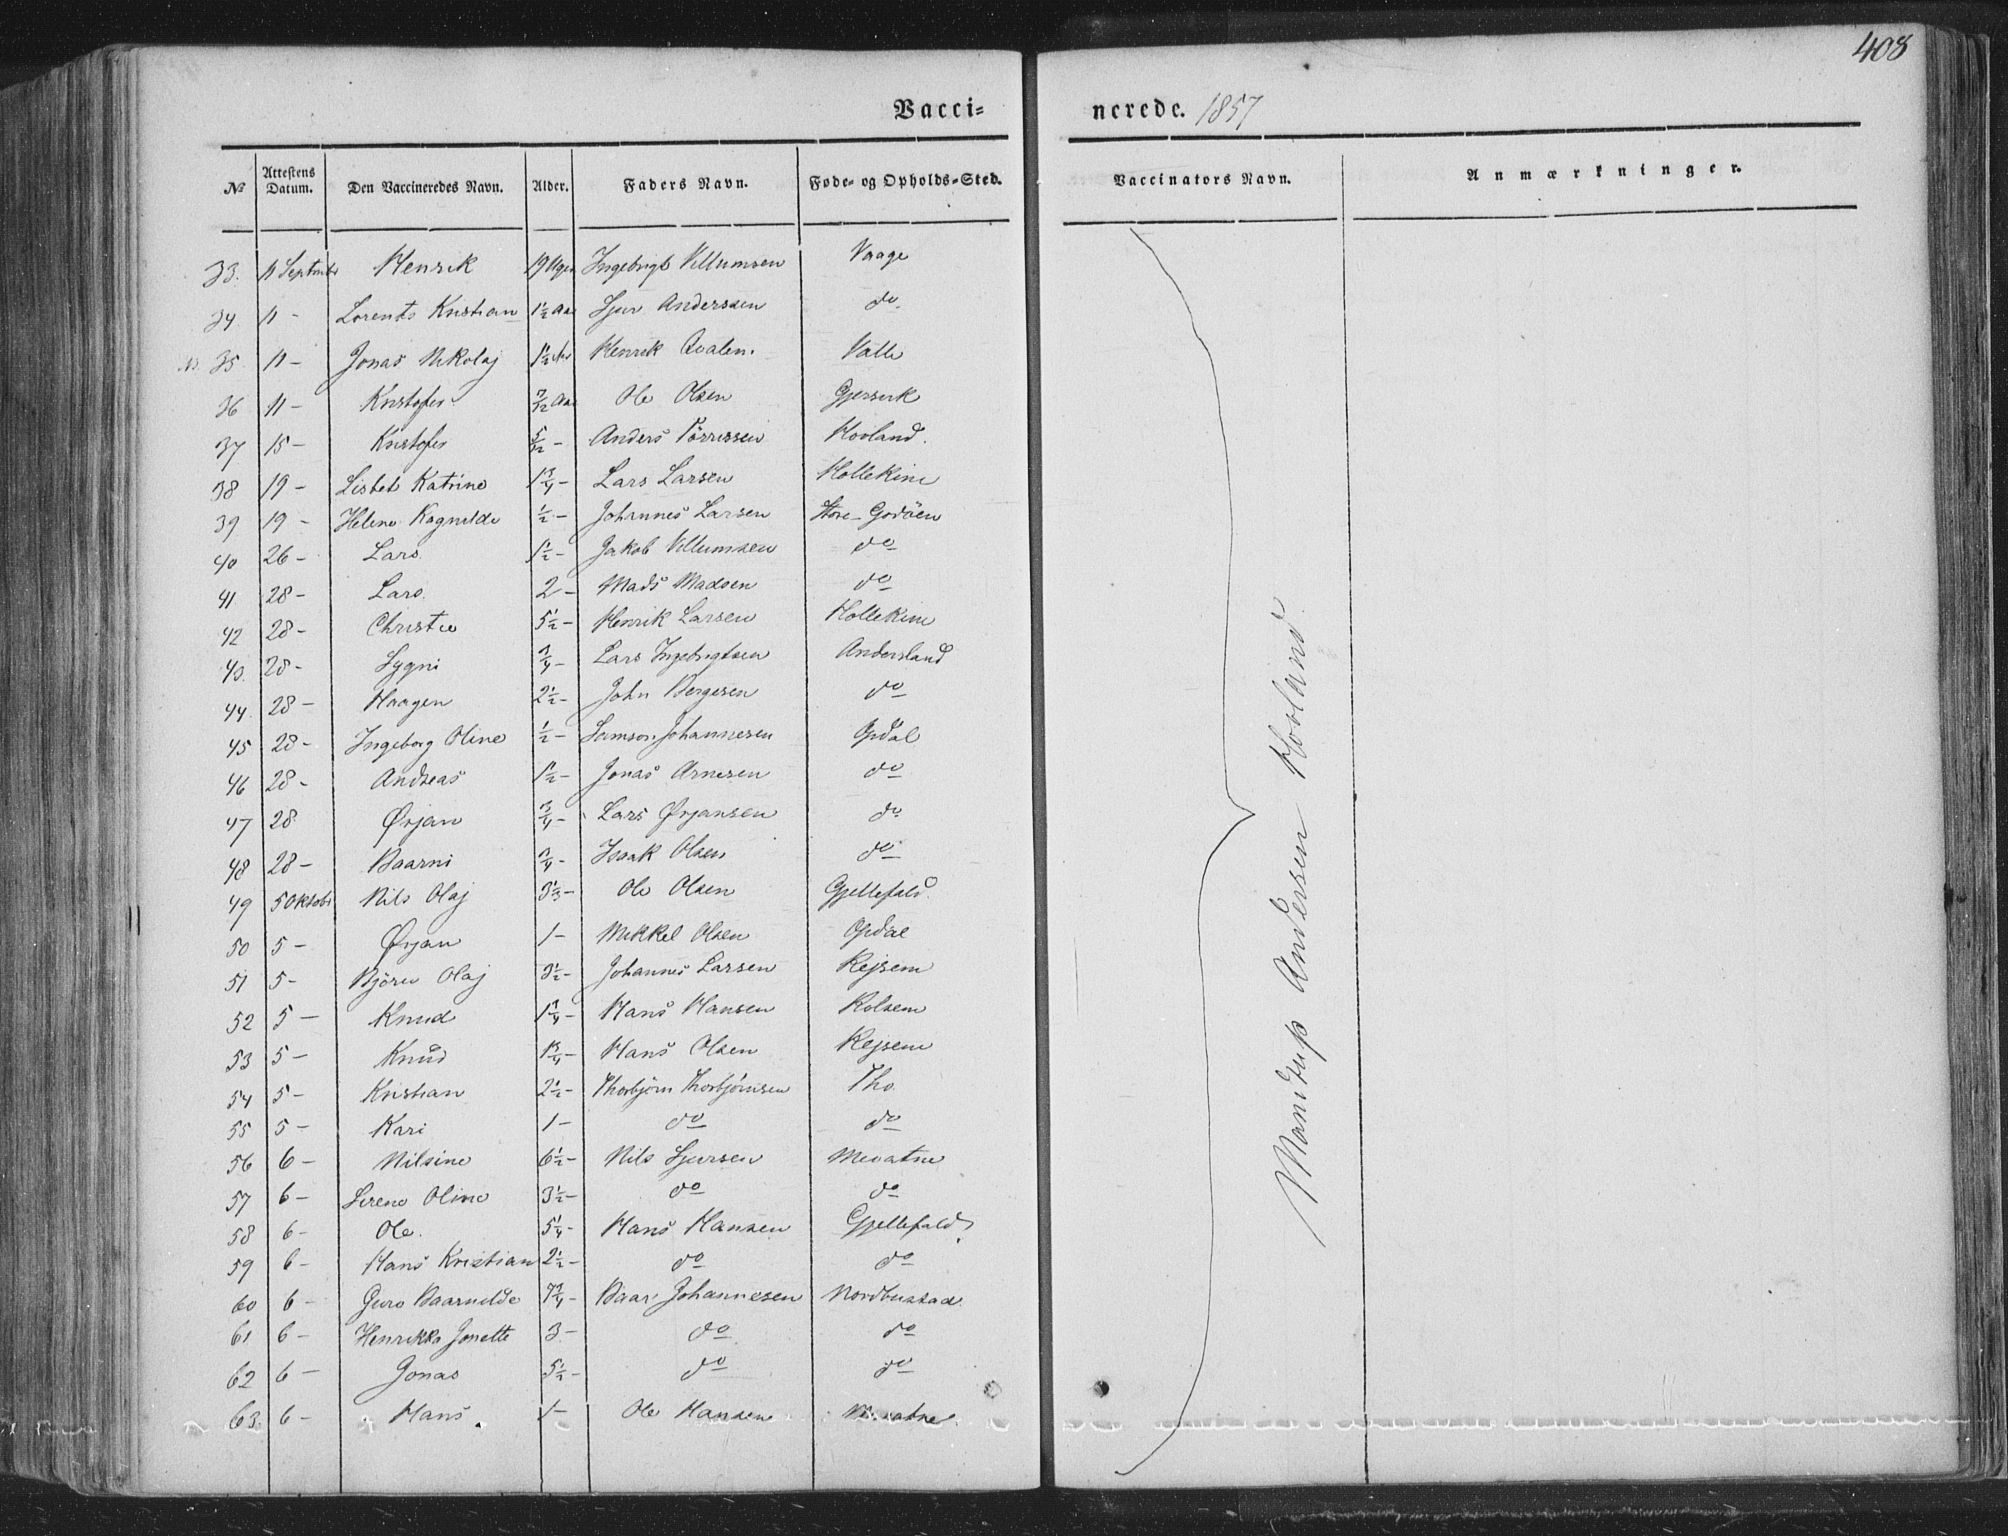 408
Vacci= nerede. 1857
№ Attestens Datum. Den Vaccineredes Navn. Alder. Faders Navn. Føde= og Opholds=Sted. Vaccinators Navn. Anmærkninger.
33. 11 Septmbr Henrik 19 Uger Ingebrigt Villumsen Vaage
34. 11 - Lorents Kristian 1 1/2 Aar Sjur Anderssen do
35 11 - Jonas Nikolaj 1 1/2 Aar Henrik Qvalen. Valle
36 11 - Kristofer 7/12 Aar Ole Olsen Gjersvik
37 15 - Kristofer 5/12 - Anders Törrissen Hovland.
38 19 - Lisbet Katrine 1 3/4 - Lars Larsen Hollekim
39 19 - Helene Ragnilde 1/2 - Johannes Larsen Store-Godöen
40 26 - Lars 1 1/2 - Jakob Villumsen do
41 28 - Lars. 2 - Mads Madsen do
42 28 - Christie 5 1/2 - Henrik Larsen Hollekim
43. 28 - Sygni 3/4 - Lars Ingebrigtsen Andersland
44. 28 - Haagen 2 1/2 - John Bergesen do
45 28 - Ingeborg Oline 1/2 - Samson Johannesen Opdal
46 28 - Andreas 1 1/2 - Jonas Arnesen do
47 28. Ørjan 3/4 - Lars Ørjansen do
48 28 - Baarni 3/4 - Isaak Olsen do
49 5 Oktobr Nils Olaj 3 1/3 - Ole Olsen Gjellefald.
50 5 - Ørjan 1 - Mikkel Olsen Opdal
51 5 - Björn Olaj 3 1/2 - Johannes Larsen Rejsem
52 5 - Knud 1 3/4 - Hans Hansen Kolsem
53 5 - Knud 1 3/4 - Hans Olsen Rejsem
54 5 - Kristian 2 1/2 - Thorbjörn Thorbjörnsen Tho
55 5 - Kari 1 - do do
56 6 - Nilsine 6 1/2 - Nils Sjursen Mevatne
57 6 - Serene Oline 3 1/2 - do do
58 6 - Ole. 5 1/4 - Hans Hansen Gjellefald
59 6 - Hans Kristian 2 1/2 - do do
60 6 - Guro Baarnilde 7 3/4 - Baar Johannesen Nordbustad
61 6 - Henrikka Jonette 3 - do do
62 6 - Jonas 5 1/2 - do do
63. 6 - Hans. 1 - Ole Hansen Mevatne.
Mandrup Andersen Hovland